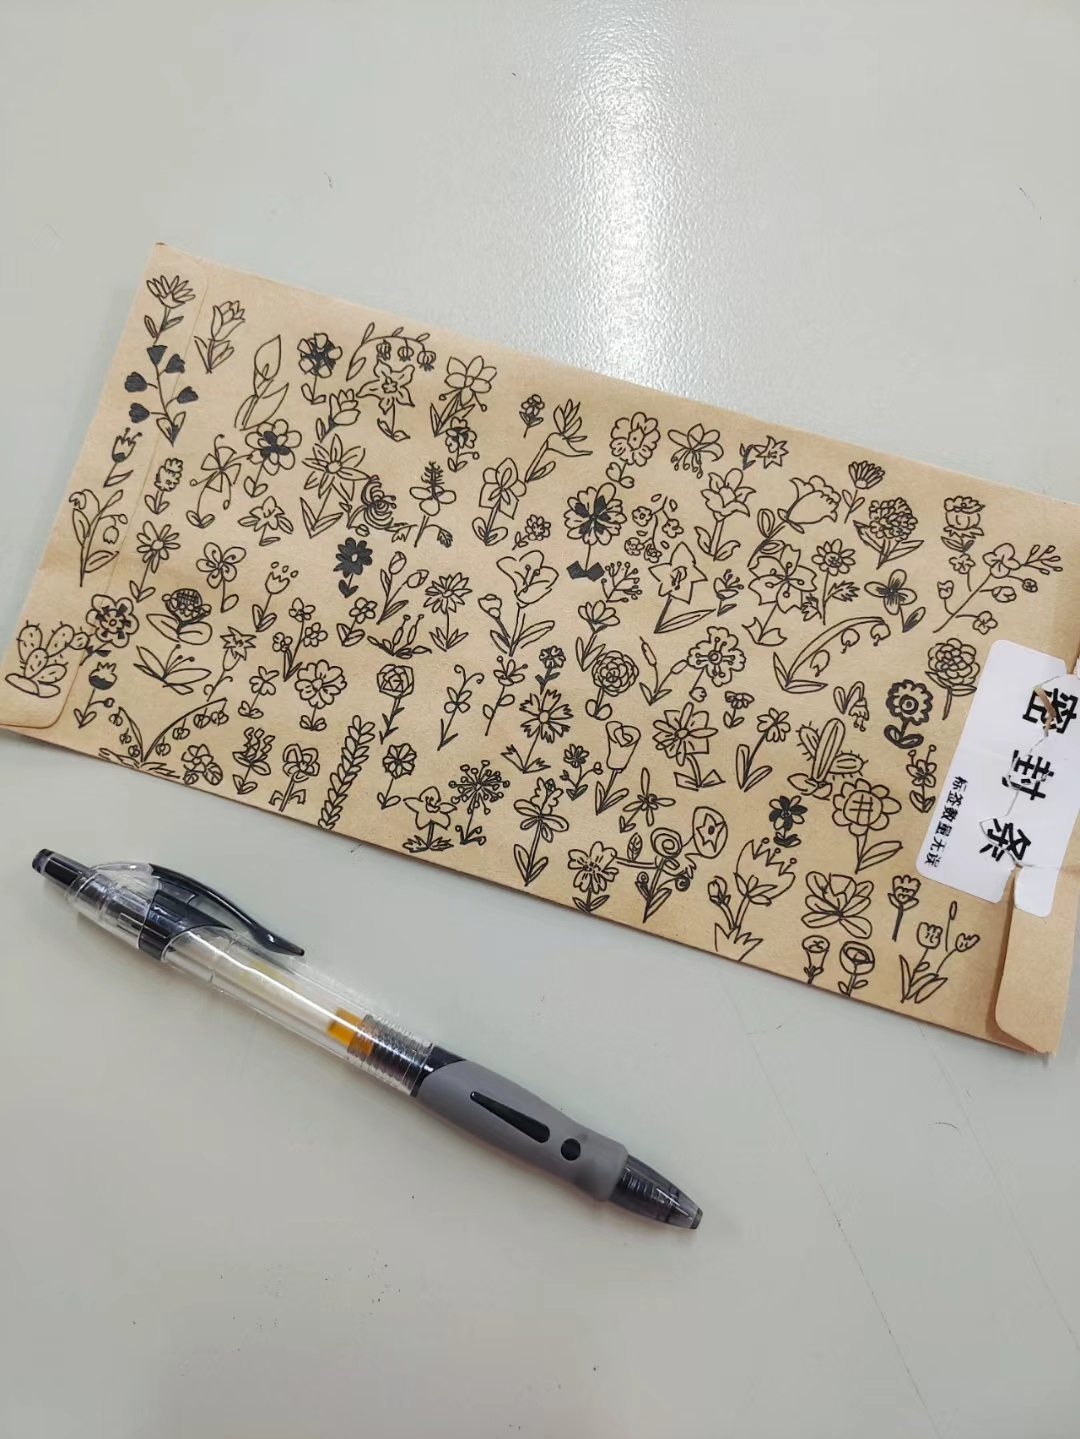 密封条
标签数量无误